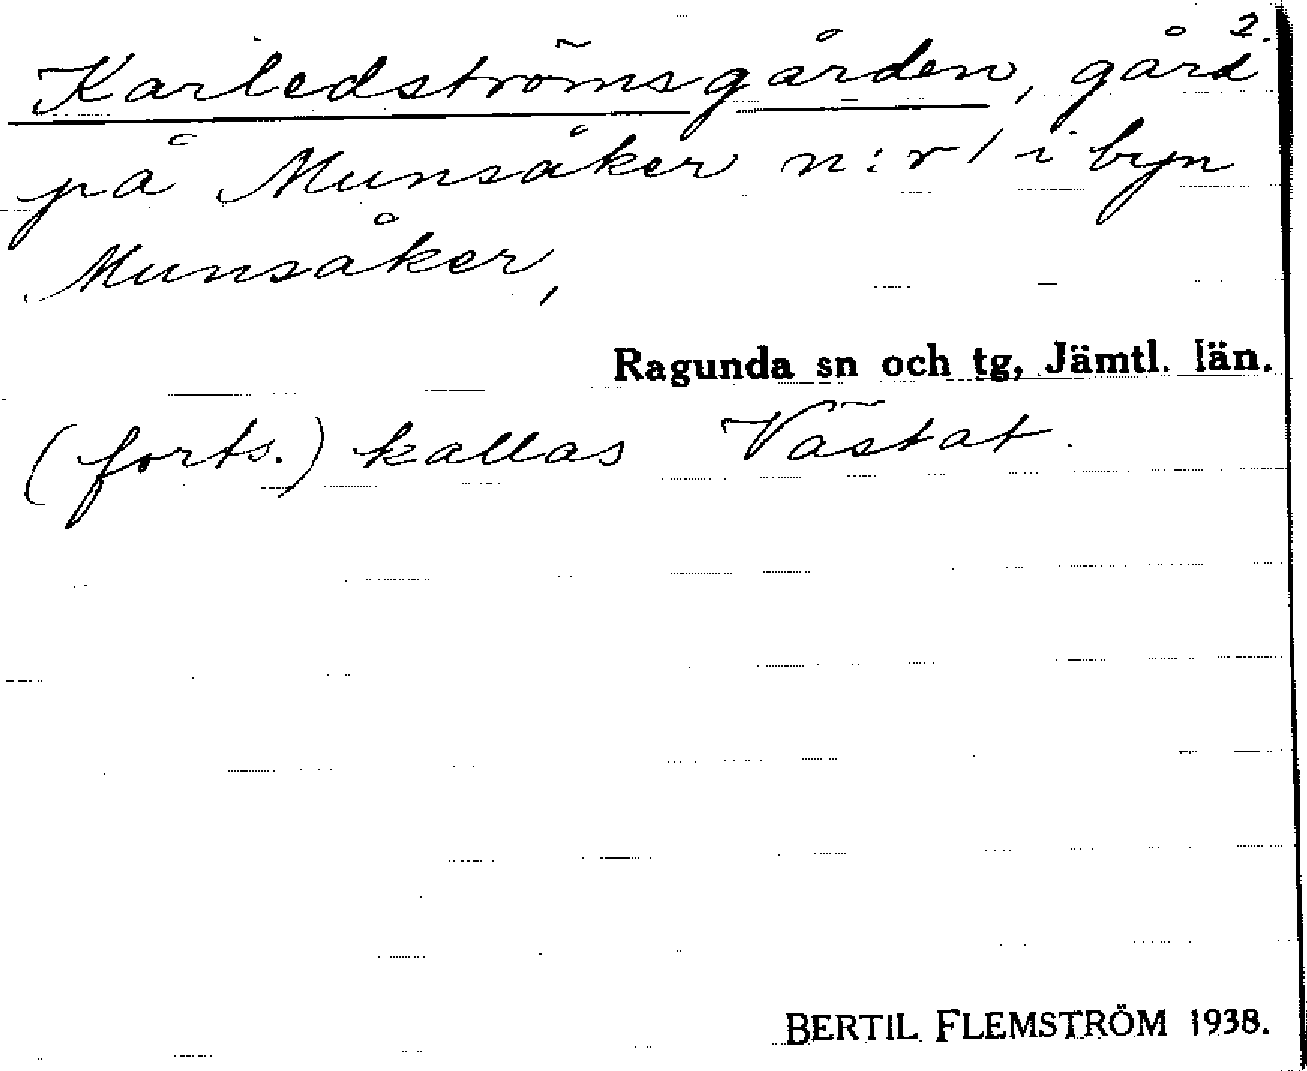 2.
Karledströmsgården, gård
på Munsåker n:r 1 i byn
Munsåker,
Ragunda sn och tg, Jämtl. län.
(forts.) kallas Västat.
BERTIL FLEMSTRÖM 1938.